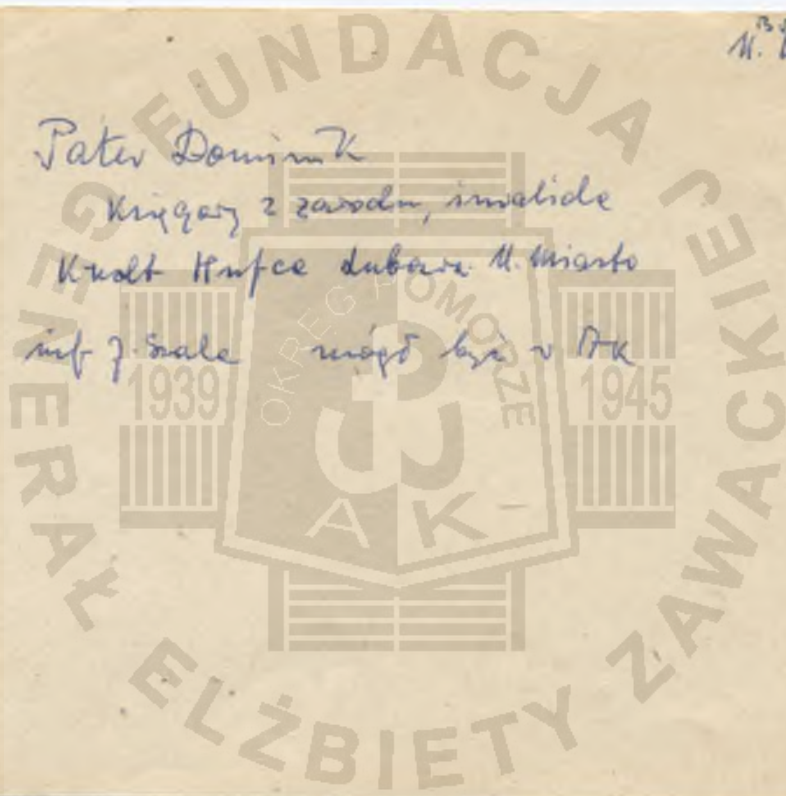 M.
Pater Dominik
Księgarz z zawodu, inwalida
K-nolt Hufca Lubawa N. Miasto
inf J. Szala mógł być w AK
FUNDACJA
GENERAŁ ELŻBIETY ZAWACKIEJ
OKRĘG POMORZE
1939
1945
AK